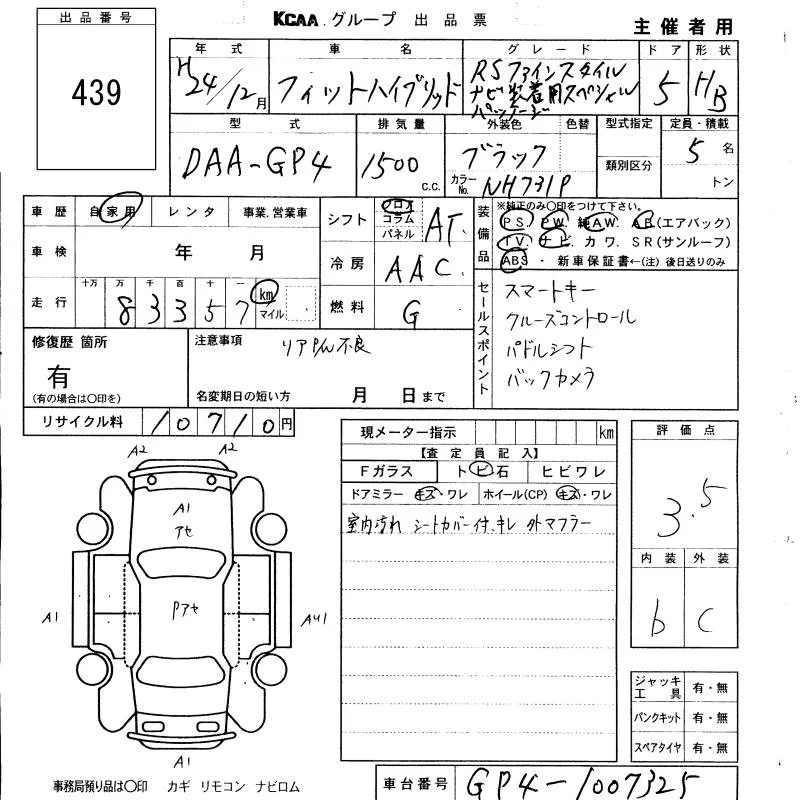 出品番号
439
KCAA グループ 出品票
主催者用
年式 車名 グレード ドア 形状
H24/12月 フィットハイブリッド RSファインスタイル
ナビ装着用スペシャル
パッケージ
5 HB
型式 排気量 外装色 色替 型式指定 定員・積載
DAA-GP4 1500 c.c. ブラック 類別区分 5 名
カラーNo. NH731P トン
車歴 自家用 レンタ 事業・営業車
シフト フロア コラム パネル AT
装備品 ※純正のみ〇印をつけて下さい。
PS. PW. 純AW. AB(エアバック)
TV. ナビ. カワ. SR(サンルーフ)
ABS ・ 新車保証書←(注)後日送りのみ
車検 年 月
冷房 AAC
走行 十万 万 千 百 十 一
8 3 3 5 7 km マイル
燃料 G
セールスポイント
スマートキー
クルーズコントロール
パドルシフト
バックカメラ
修復歴 箇所
有
(有の場合は〇印を)
注意事項 リアP/W不良
名変期日の短い方 月 日まで
リサイクル料 10710円
現メーター指示 km
【査定員記入】
Fガラス トビ石 ヒビワレ
ドアミラー キズ・ワレ ホイール(CP) キズ・ワレ
室内汚れ シートカバー付.キレ 外マフラー
評価点
3.5
内装 外装
b C
A2 A2
A1
アセ
Pアセ
A1 AU1
A1
ジャッキ工具 有・無
パンクキット 有・無
スペアタイヤ 有・無
事務局預り品は〇印 カギ リモコン ナビロム
車台番号 GP4-1007325